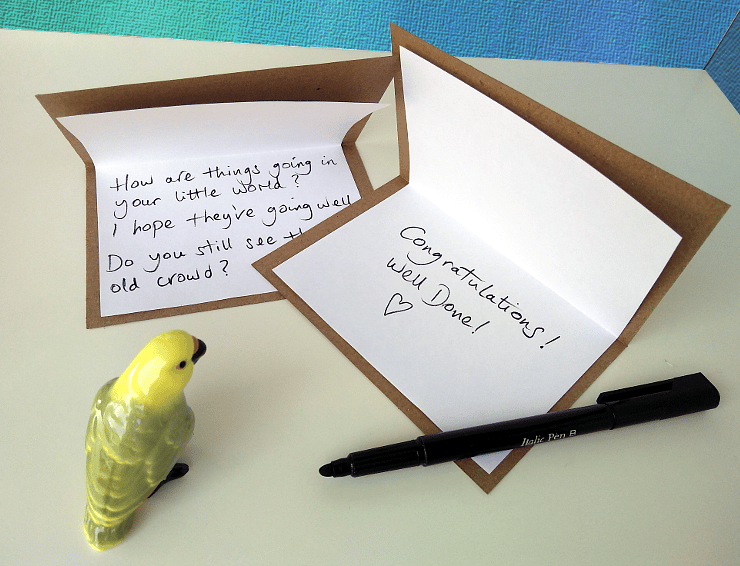 How are things going in
your little world?
I hope they've going well
Do you still see
old crowd?
Congratulations!
Well Done!
Italic Pen